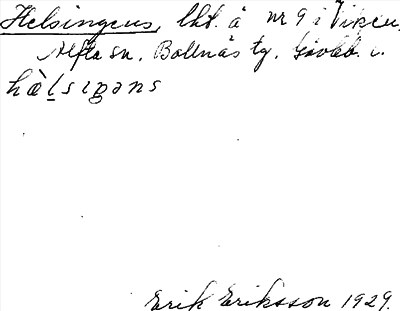 Helsingens, lht. å nr 9 i Viken,
Alfta sn. Bollnäs tg. Gävleb. l.
hæ̀lsıŋəns
Erik Eriksson 1929.